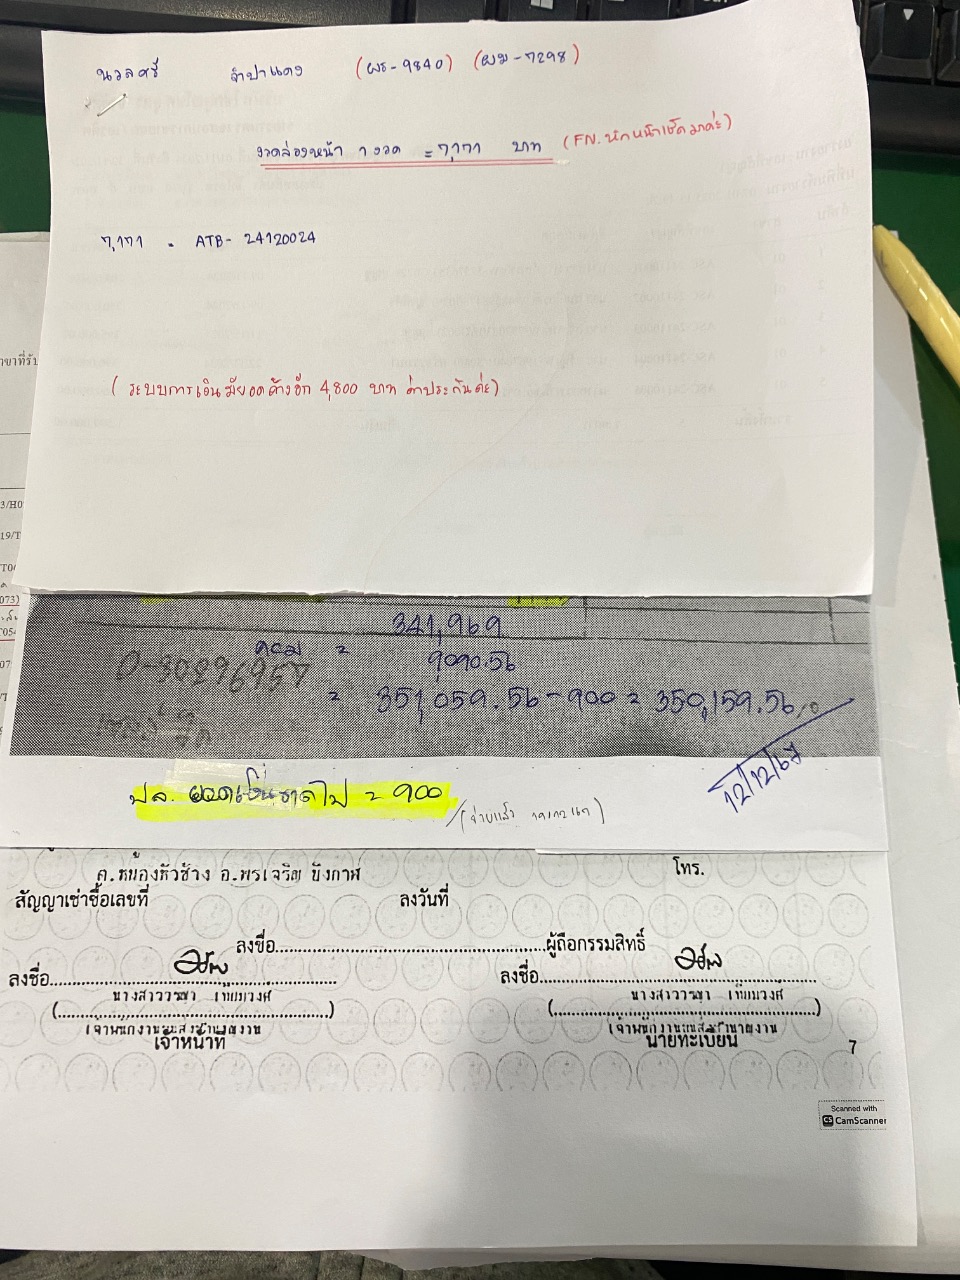 นวลศรี จำปาแดง (ผร-9840) (ผม-7298)
งวดล่วงหน้า 1 งวด = 7,171 บาท (FN. หักหน้าเช็คมาค่ะ)
7,171 . ATB- 24120024
(ระบบการเงินมียอดค้างอีก 4,800 บาท ค่าประกันค่ะ)
341,969
คอม = 9090.56
= 351,059.56 - 900 = 350,159.56
0-30296957
12/12/67
ปล. ยอดเงินขาดไป = 900
(จ่ายแล้ว
ต.หนองหัวช้าง อ.พรเจริญ บึงกาฬ โทร.
สัญญาเช่าซื้อเลขที่ ลงวันที่
ลงชื่อ ผู้ถือกรรมสิทธิ์
ลงชื่อ ลงชื่อ
นางสาววรรษา เทียมวงศ์ นางสาววรรษา เทียมวงศ์
เจ้าพนักงานขนส่งชำนาญงาน เจ้าพนักงานขนส่งชำนาญงาน
เจ้าหน้าที่ นายทะเบียน
7
Scanned with
CS CamScanner